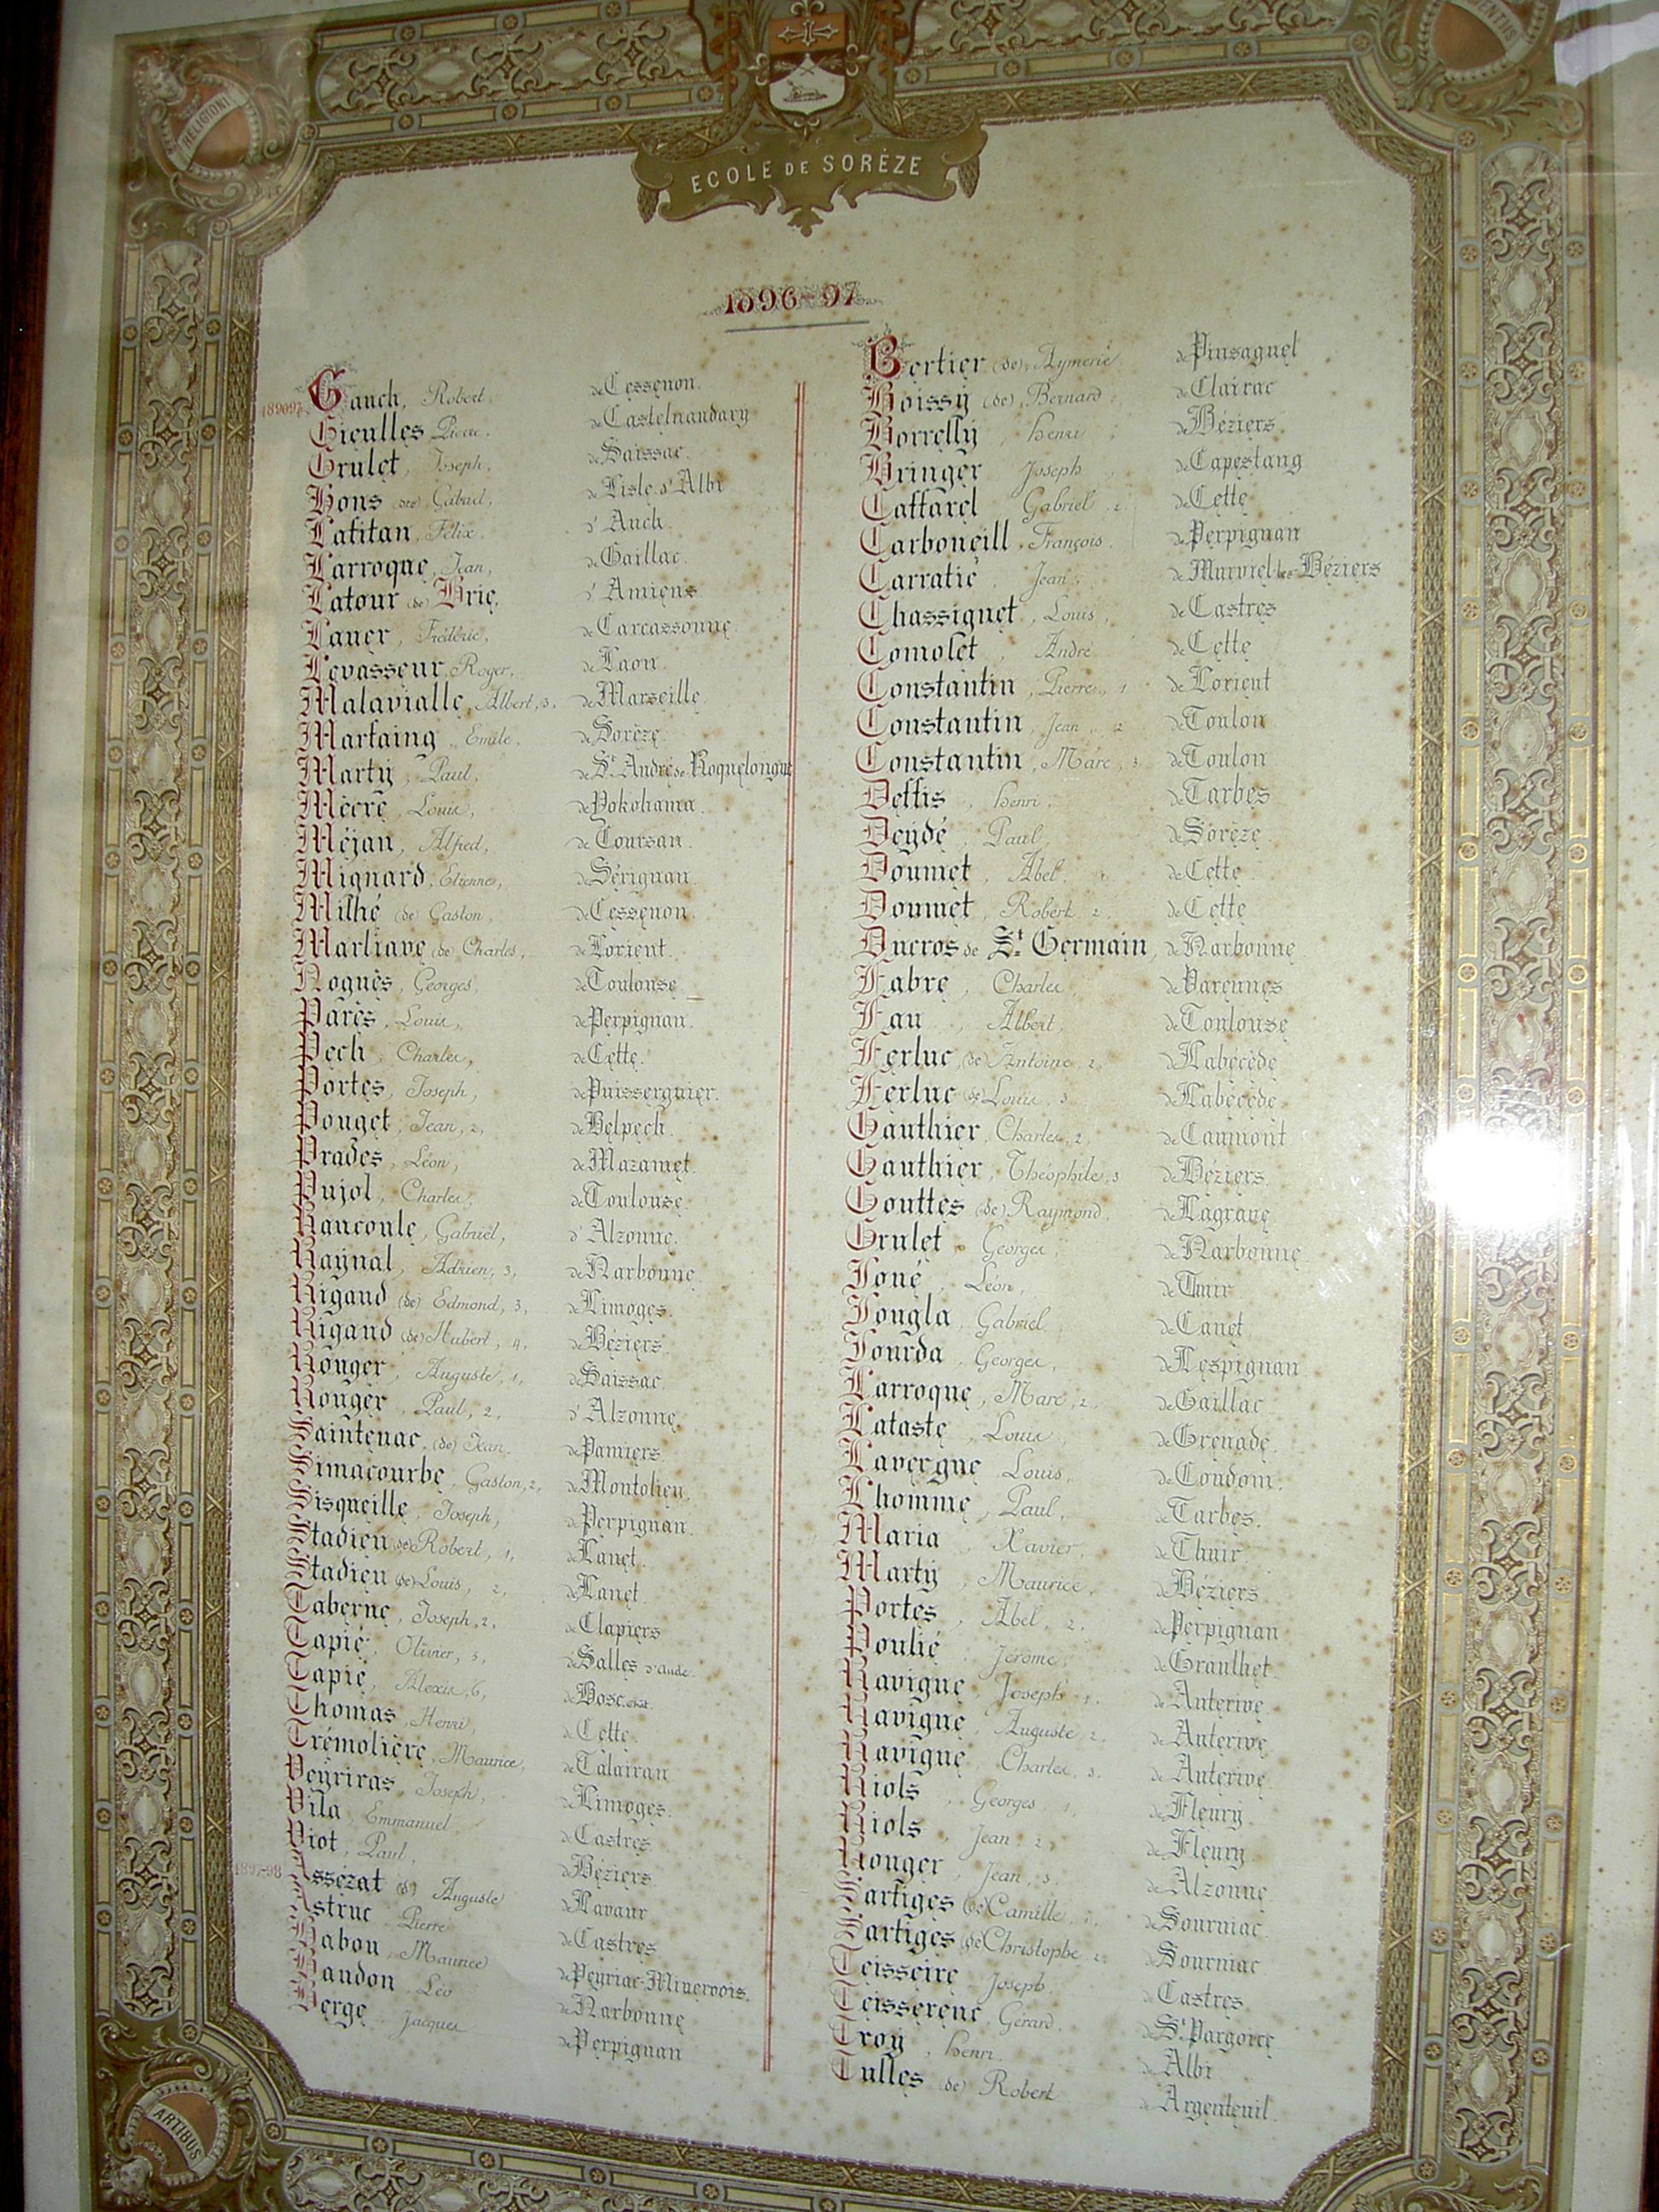 RELIGIONI
ECOLE DE SORÈZE
1896-97
1896 97 Gauch, Robert, de Cessenon.
Gieulles Pierre, de Castelnaudary
Grulet, Joseph, de Saissac.
Hons (des) Gabriel, de Lisle d'Albi
Lafitan, Félix, d'Auch.
Larroque, Jean, de Gaillac.
Latour (de) Brie, d'Amiens
Lauer, Frédéric, de Carcassonne.
Levasseur, Roger, de Laon.
Malavialle, Albert, 3, de Marseille.
Marfaing, Emile, de Sorèze.
Marty, Paul, de St André de Roquelongue
Mècre, Louis, de Yokohama.
Méjan, Alfred, de Coursan.
Mignard, Etienne, de Sérignan.
Milhé (de) Gaston, de Cessenon.
Marliave (de) Charles, de Lorient.
Noguès, Georges, de Toulouse
Parès, Louis, de Perpignan.
Pech, Charles, de Cette.
Portes, Joseph, de Puisserguier.
Pouget, Jean, 2, de Belpech.
Prades, Léon, de Mazamet.
Pujol, Charles, de Toulouse.
Raucoule, Gabriel, d'Alzonne.
Raynal, Adrien, 3, de Narbonne.
Rigaud (de) Edmond, 3, de Limoges.
Rigaud (de) Hubert, 4, de Béziers.
Rouger, Auguste, 1, de Saissac.
Rouger, Paul, 2, d'Alzonne.
Saintenac, (de) Jean, de Pamiers.
Simacourbe, Gaston, 2, de Montolieu.
Sisqueille, Joseph, de Perpignan.
Stadieu (de) Robert, 1, de Lanet.
Stadieu (de) Louis, 2, de Lanet.
Taberne, Joseph, 2, de Clapiers
Tapié, Olivier, 5, de Salles d'Aude.
Tapié, Alexis, 6, de Bosc
Thomas, Henri, de Cette.
Trémolière, Maurice, de Talairan
Peyriras, Joseph, de Limoges.
Vila, Emmanuel, de Castres
Viot, Paul, de Béziers
1897-98 Assézat (d') Auguste de Lavaur
Astruc Pierre de Castres
Babou, Maurice de Peyriac-Minervois.
Baudon, Léo de Narbonne
Berge Jacques de Perpignan
Bertier (de), Aymeric de Pinsaguel
Boissy (de), Bernard, de Clairac
Borrelly, Henri, de Béziers.
Bringer Joseph, de Capestang
Caffarel Gabriel, 2. de Cette
Carboneill, François, de Perpignan
Carratié, Jean, de Murviel-les-Béziers
Chassignet, Louis, de Castres
Comolet, André de Cette
Constantin, Pierre, 1 de Lorient
Constantin, Jean, 2 de Toulon
Constantin, Marc, 3 de Toulon
Deffis, Henri, de Tarbes
Deydé, Paul, de Sorèze.
Doumet, Abel, de Cette
Doumet, Robert, 2. de Cette
Ducros de St Germain, de Narbonne
Fabre, Charles, de Varennes
Fau, Albert, de Toulouse
Ferluc, (de) Antoine, 2, de Labécède
Ferluc (de) Louis, 3 de Labécède
Gauthier, Charles, 2, de Caumont
Gauthier, Théophile, 3 de Béziers.
Gouttes (de) Raymond, de Lagrave
Grulet, Georges, de Narbonne
Joué, Léon, de Thuir
Jougla, Gabriel, de Canet
Jourda, Georges, de Lespignan
Larroque, Marc, 2. de Gaillac
Lataste, Louis, de Grenade.
Lavergne Louis, de Condom.
Lhomme, Paul, de Tarbes.
Maria, Xavier, de Thuir
Marty, Maurice, de Béziers
Portes, Abel, 2, de Perpignan
Poulié Jérôme, de Graulhet
Ravigne, Joseph, 1. de Auterive
Ravigne, Auguste 2, de Auterive
Ravigne Charles, 3. de Auterive
Riols, Georges, 1, de Fleury
Riols, Jean, 2, de Fleury
Rouger, Jean, 3, de Alzonne
Sartiges (de) Camille, 1, de Sourniac
Sartiges (de) Christophe 2, de Sourniac
Teisseire, Joseph, de Castres
Teisserenc, Gérard, de St Pargoire
Troy, Henri, de Albi
Tulles (de) Robert de Argenteuil
ARTIBUS